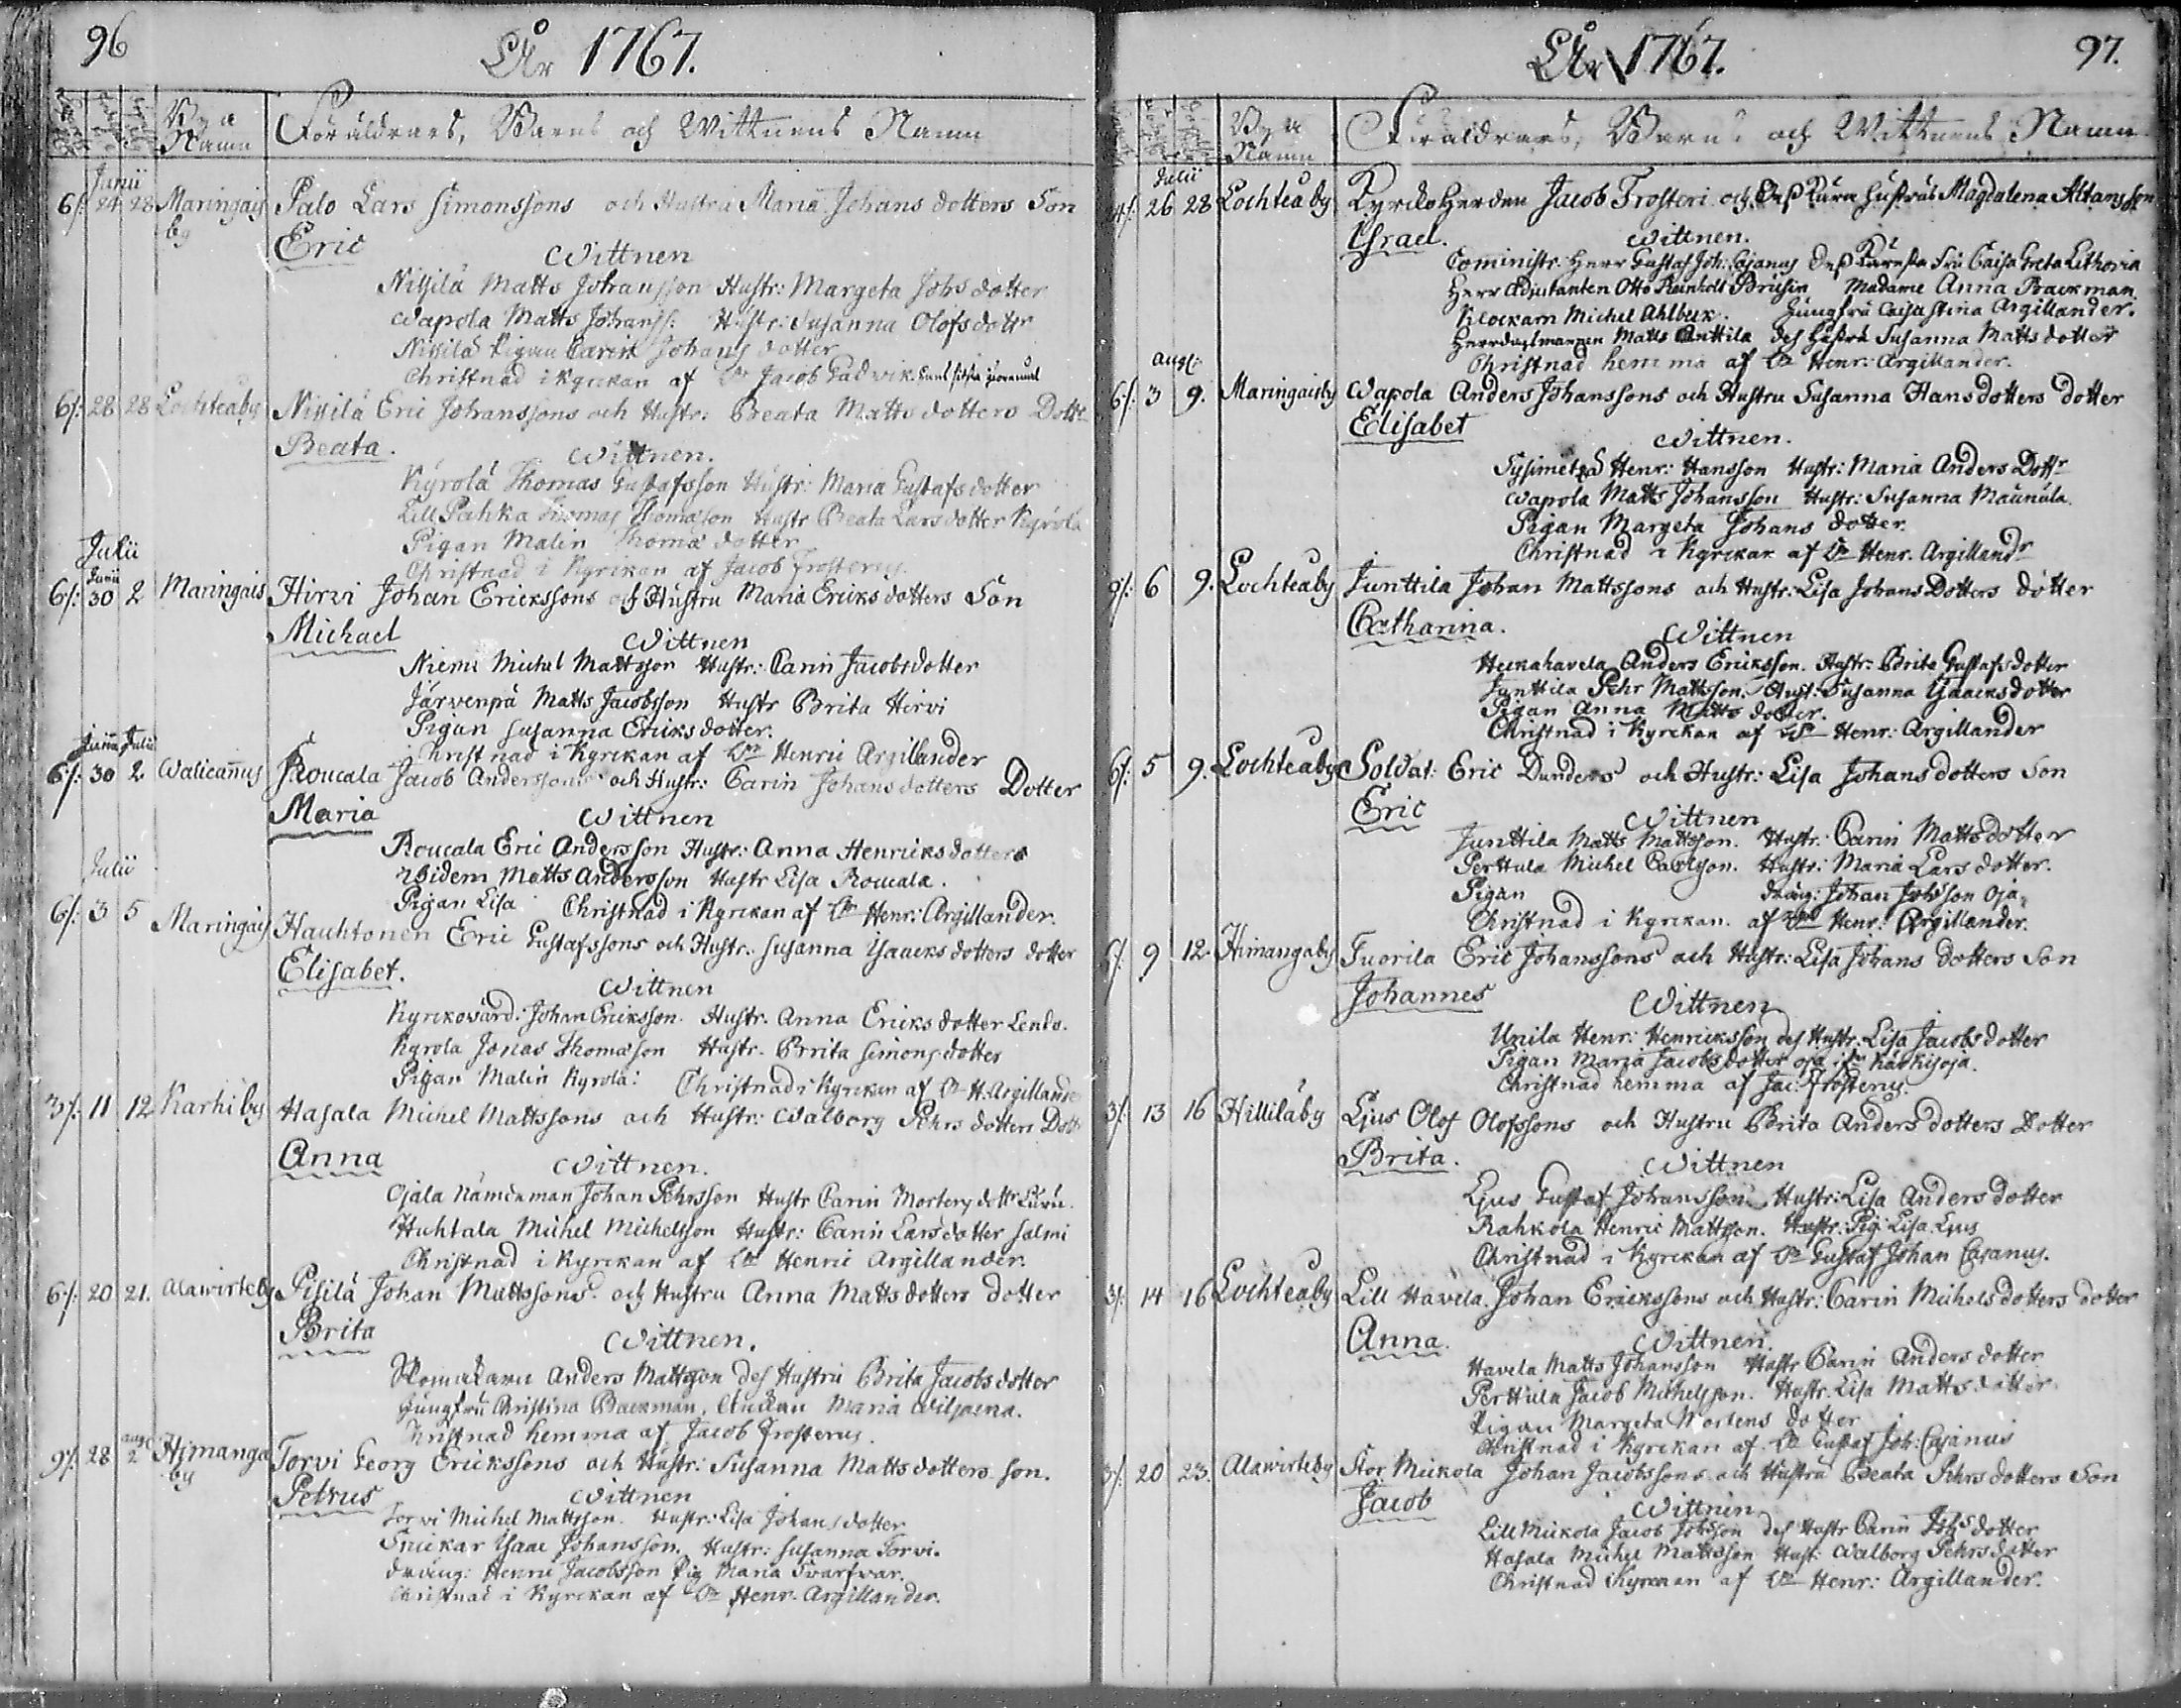 96
År 1767.
Bya Namn
Föräldrars, Barns och Wittnens Namn
Junii
6/: 24 28 Maringais by Palo Lars Simonssons och Hustru Maria Johans dotters Son
Eric
Wittnen
Nissilä Matts Johansson Hustr: Margeta Johs dotter
Wapola Matts Johanss: Hustr: Susanna Olofs dottr
Nissilä Pigan Carin Johans dotter
Christnad i Kyrckan af Jacob
6/: 28 28 Lochteåby Nissilä Eric Johanssons och Hustr: Beata Matts dotters Dottr
Beata.
Wittnen.
Kyrolä Thomas Gustafsson Hustr: Maria Gustafs dotter
Lill Pahka Thomas Thomasson Hustr Beata Lars dotter Kyrolä
Pigan Malin Thomæ dotter
Christnad i Kyrckan af Jacob Frosterus.
Julii
Junii
6/: 30 2 Maringais Hirvi Johan Erickssons och Hustru Maria Ericks dotters Son
Michael
Wittnen
Niemi Michel Mattsson Hustr: Carin Jacobs dotter
Järvenpä Matts Jacobsson Hustr Brita Hirvi
Pigan Susanna Ericks dotter.
Christnad i Kyrckan af Henric Argillander
Junii Julii
6/: 30 2 Walicannus Roucala Jacob Anderssons och Hustr: Carin Johans dotters Dotter
Maria
Wittnen
Roucala Eric Andersson Hustr: Anna Henricks dotter
Ibidem Matts Andersson Hustr Lisa Roucala.
Pigan Lisa Christnad i Kyrckan af Henr: Argillander.
Julii
6/: 3 5 Maringais Hauhtonen Eric Gustafssons och Hustr: Susanna Isaacks dotters dotter
Elisabet.
Wittnen
Kyrckowärd. Johan Ericksson. Hustr. Anna Ericks dotter
Kyrola Jonas Thomasson Hustr. Brita Simons dotter
Pigan Malin Kyrola: Christnad i Kyrckan af H. Argillander
3/: 11 12 Karhi by Hasala Michel Mattssons och Hustr: Walborg Pehrs dotters Dottr
Anna
Wittnen.
Ojala Nämdeman Johan Pehrsson Hustr Carin
Huhtala Michel Michelsson Hustr: Carin Lars dotter Salmi
Christnad i Kyrckan af Henric Argillander.
6/: 20 21. Alawirteby Pisilä Johan Mattssons och Hustru Anna Matts dotters dotter
Brita
Wittnen.
Anders Mattsson des Hustru Brita Jacobs dotter
Jungfru Christina Backman, Maria
Christnad hemma af Jacob Frosterus
aug:
9/: 28 2 Himanga by Torvi Georg Erickssons och Hustr: Susanna Matts dotters son.
Petrus
Wittnen
Torvi Michel Mattsson. Hustr: Lisa Johans dotter
Snickar Isaac Johansson. Hustr: Susanna Torvi.
dräng: Henric Jacobsson Pig Maria
Christnad i Kyrckan af Henr. Argillander.
97.
År 1767.
Bya Namn
Föräldrars, Barns och Wittnens Namn
Julii
26 28 Lochteå by Kyrckoherden Jacob Frosteri och Magdalena
Israel.
Wittnen.
Comminist: Herr Gustaf Joh: Cajanus Caisa Greta
Herr Adjutanten Otto Reinholt Madame Anna Backman
Klockarn Michel Jungfru Caisa Stina Argillander.
Matts Anttila des Hustru Susanna Matts dotter
Christnad hemma af Henr: Argillander.
aug:
6/: 3 9. Maringaisby Wapola Anders Johanssons och Hustru Susanna Hans dotters dotter
Elisabet
Wittnen.
Henr: Hansson Hustr: Maria Anders Dottr
Wapola Matts Johansson Hustr: Susanna Maunula
Pigan Margeta Johans dotter.
Christnad i Kyrckan af Henr. Argillandr
9/: 6 9. Lochteåby Junttila Johan Mattssons och Hustr: Lisa Johans Dotters dotter
Catharina.
Wittnen
Anders Ericksson. Hustr: Brita Gustafs dotter
Junttila Pehr Mattsson. Hust: Susanna Isaacks dotter
Pigan Anna Matts dotter.
Christnad i Kyrckan af Henr: Argillander
6/: 5 9. Lochteåby Soldat: Eric Dunders och Hustr: Lisa Johans dotters Son
Eric
Wittnen
Junttila Matts Mattsson. Hustr: Carin Matts dotter
Perttula Michel Carlsson. Hustr: Maria Lars dotter.
Pigan dräng: Johan Johsson Oja
Christnad i Kyrckan. af Henr: Argillander.
6/: 9 12 Himangaby Tuorila Eric Johanssons och Hustr: Lisa Johans dotters Son
Johannes
Wittnen
Unila Henr: Henricksson des Hustr. Lisa Jacobs dotter
Pigan Maria Jacobs dotter
Christnad hemma af Jac: Frosterus.
3/: 13 16 Hilliläby Ljus Olof Olofssons och Hustru Brita Anders dotters Dotter
Brita.
Wittnen
Ljus Gustaf Johansson Hustr: Lisa Anders dotter
Rahkola Henric Mattsson. Hustr: Pig: Lisa Ljus
Christnad i Kyrckan af Gustaf Johan Cajanus.
3/: 14 16 Lochteåby Lill Havela Johan Erickssons och Hustr: Carin Michels dotters dotter
Anna.
Wittnen.
Havela Matts Johansson Hustr Carin Anders dotter
Perttula Jacob Michelsson. Hustr. Lisa Matts dotter
Pigan Margeta Mortens dotter
Christnad i Kyrckan af Gustaf Joh: Cajanus
3/: 20 23. Alawirteby Stor Mickola Johan Jacobssons och Hustru Beata Pehrs dotters Son
Jacob
Wittnen
Lill Mickola Jacob Johsson des Hustr Carin Johs dotter
Hasala Michel Mattsson Hust: Walborg Pehrs dotter
Christnad i Kyrckan af Henr: Argillander.